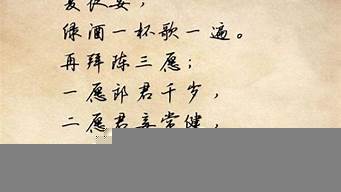 绿酒一杯歌一遍。
再拜陈三愿；
一愿郎君千岁，
二愿君妾常健，